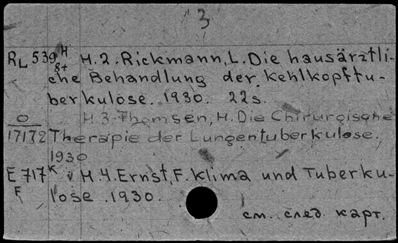 3
RL 539 H
st H.2. Rickmann, L. Die hausärztli-
che Behandlung der Kehlkopftu-
berkulose. 1930. 22s.
O
17172 H.3. Thomsen, H. Die Chirurgische
Therapie der Lungentuberkulose.
1930
E 717 K
F H.4. Ernst, F. Klima und Tuberku-
lose. 1930.
см. след. карт.